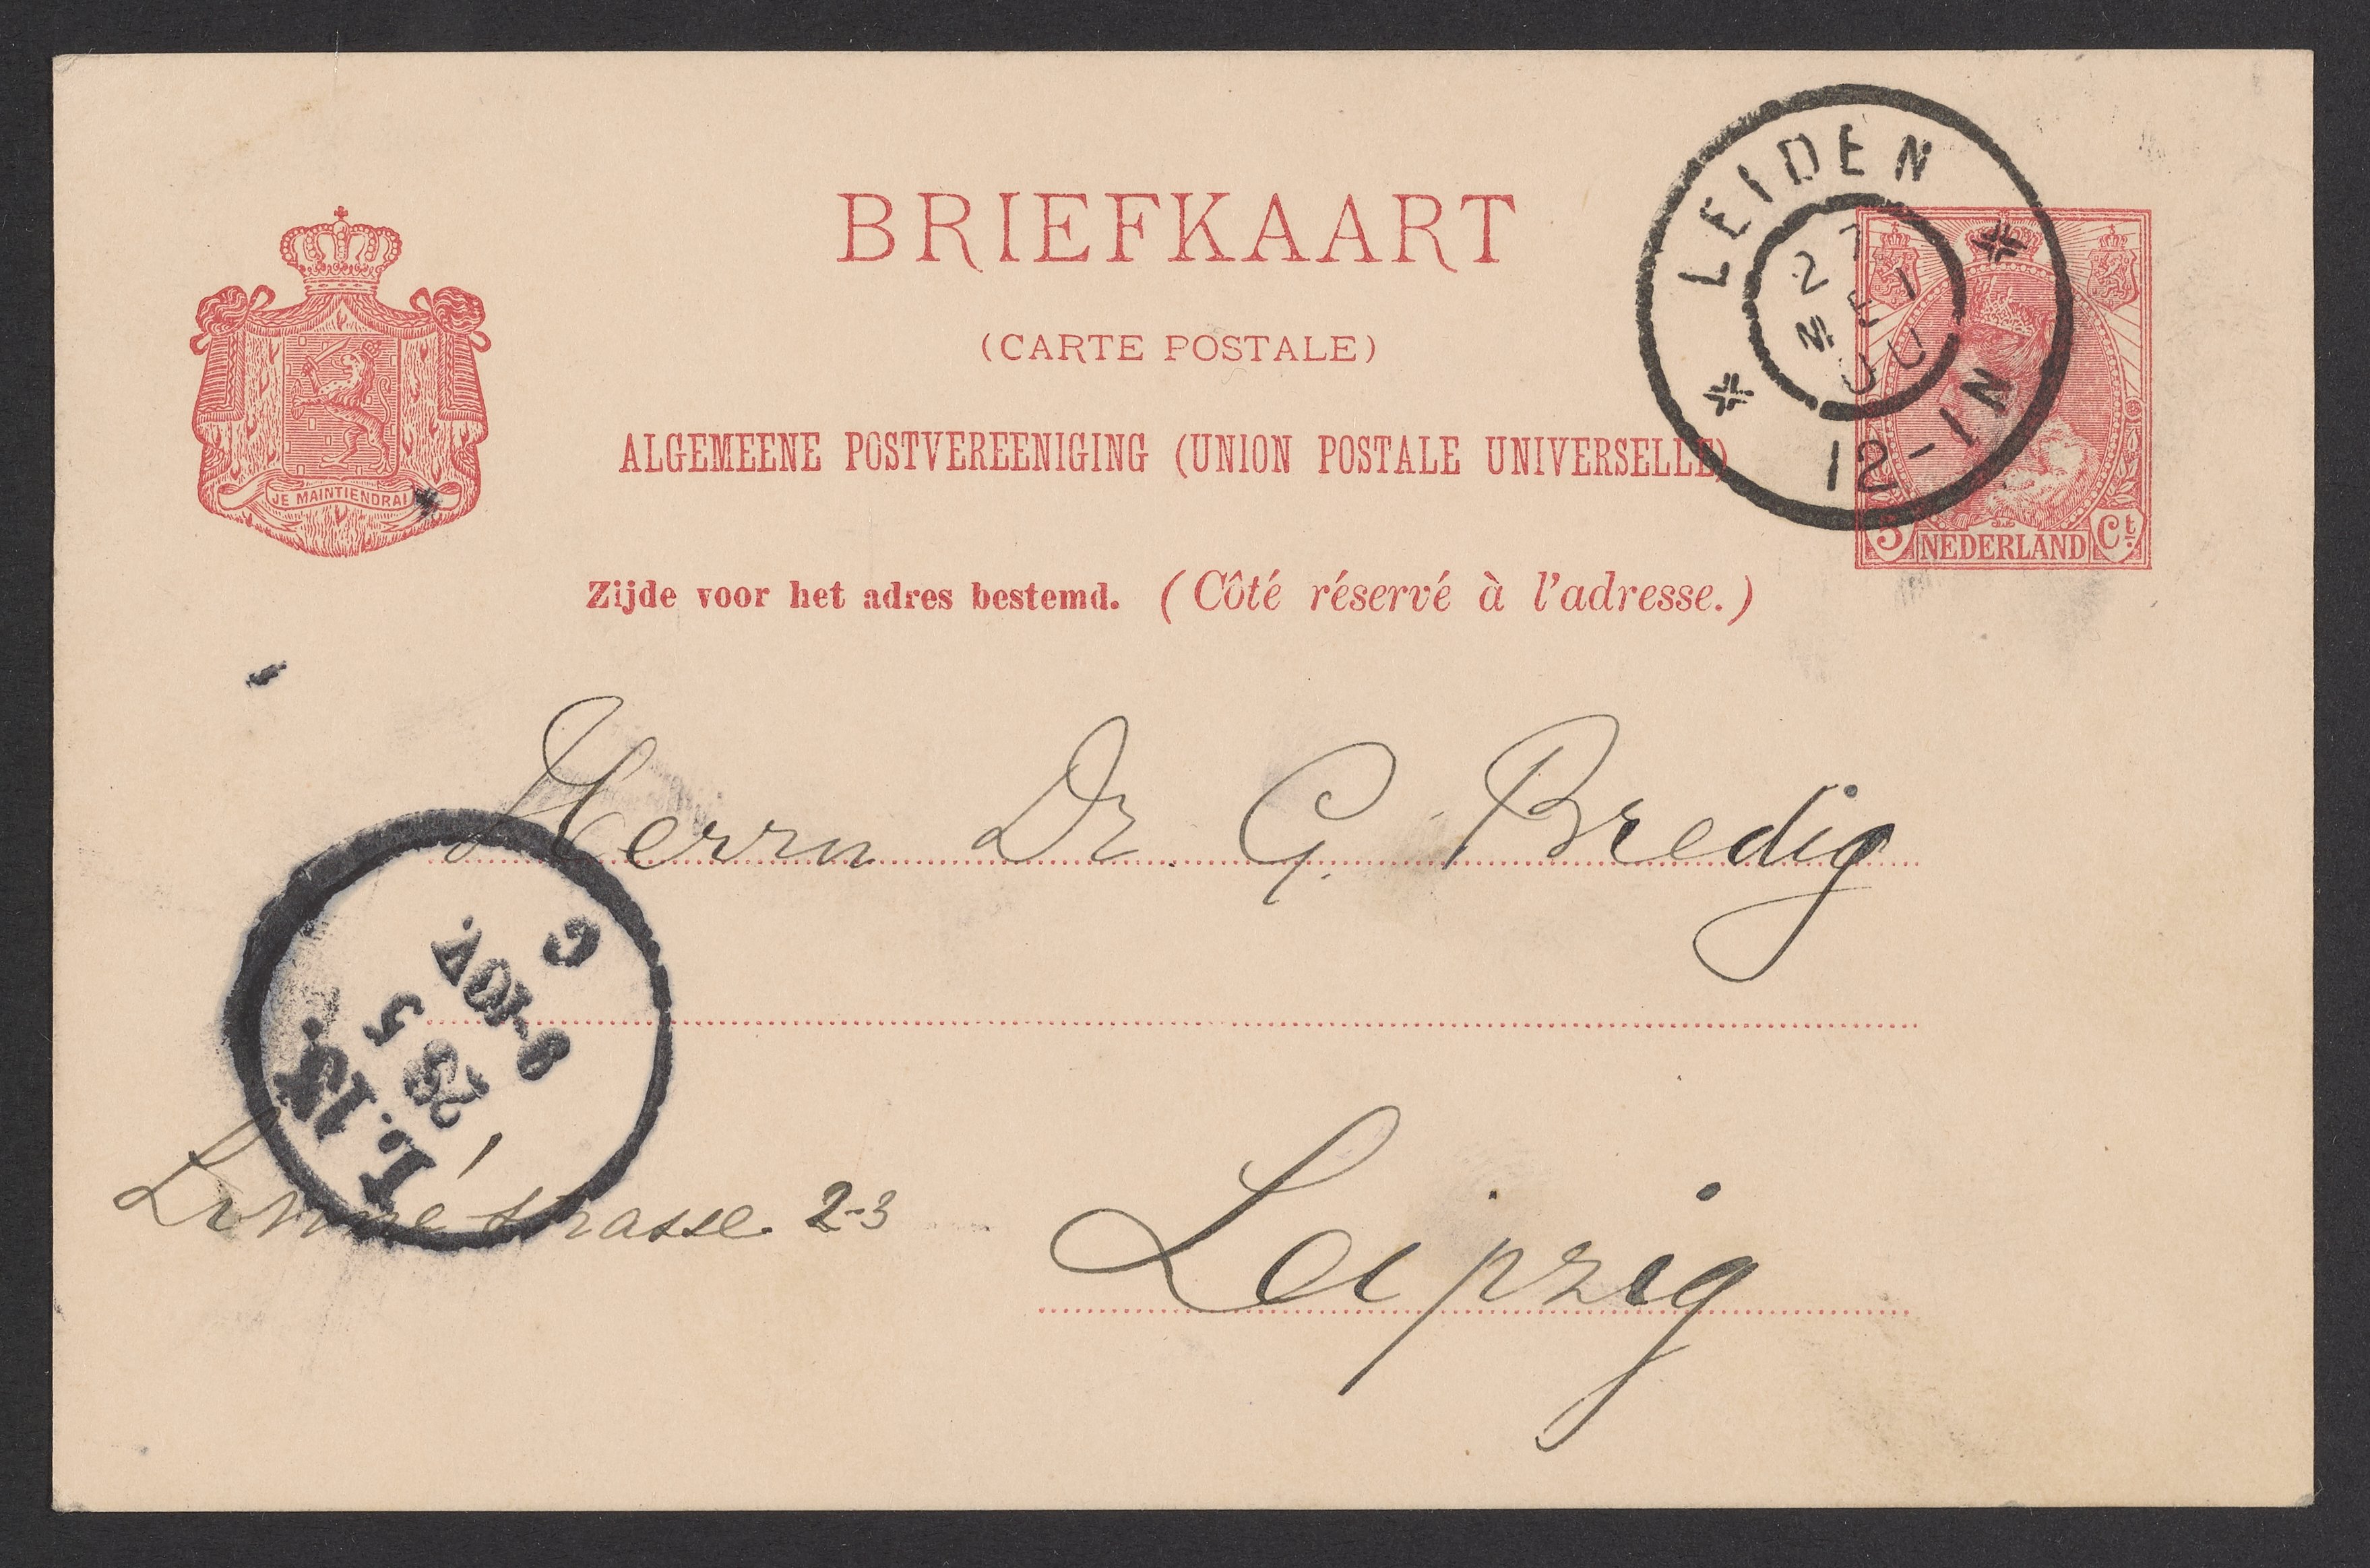 BRIEFKAART
(CARTE POSTALE)
ALGEMEENE POSTVEREENIGING (UNION POSTALE UNIVERSELLE)
Zijde voor het adres bestemd. (Côté réservé à l'adresse.)
JE MAINTIENDRAI
LEIDEN
27
MEI
00
12-1N
5 NEDERLAND Ct.
Herrn Dr. G. Bredig
L. 13.
28 5
8-10V.
c
Linnéstrasse 2-3
Leipzig